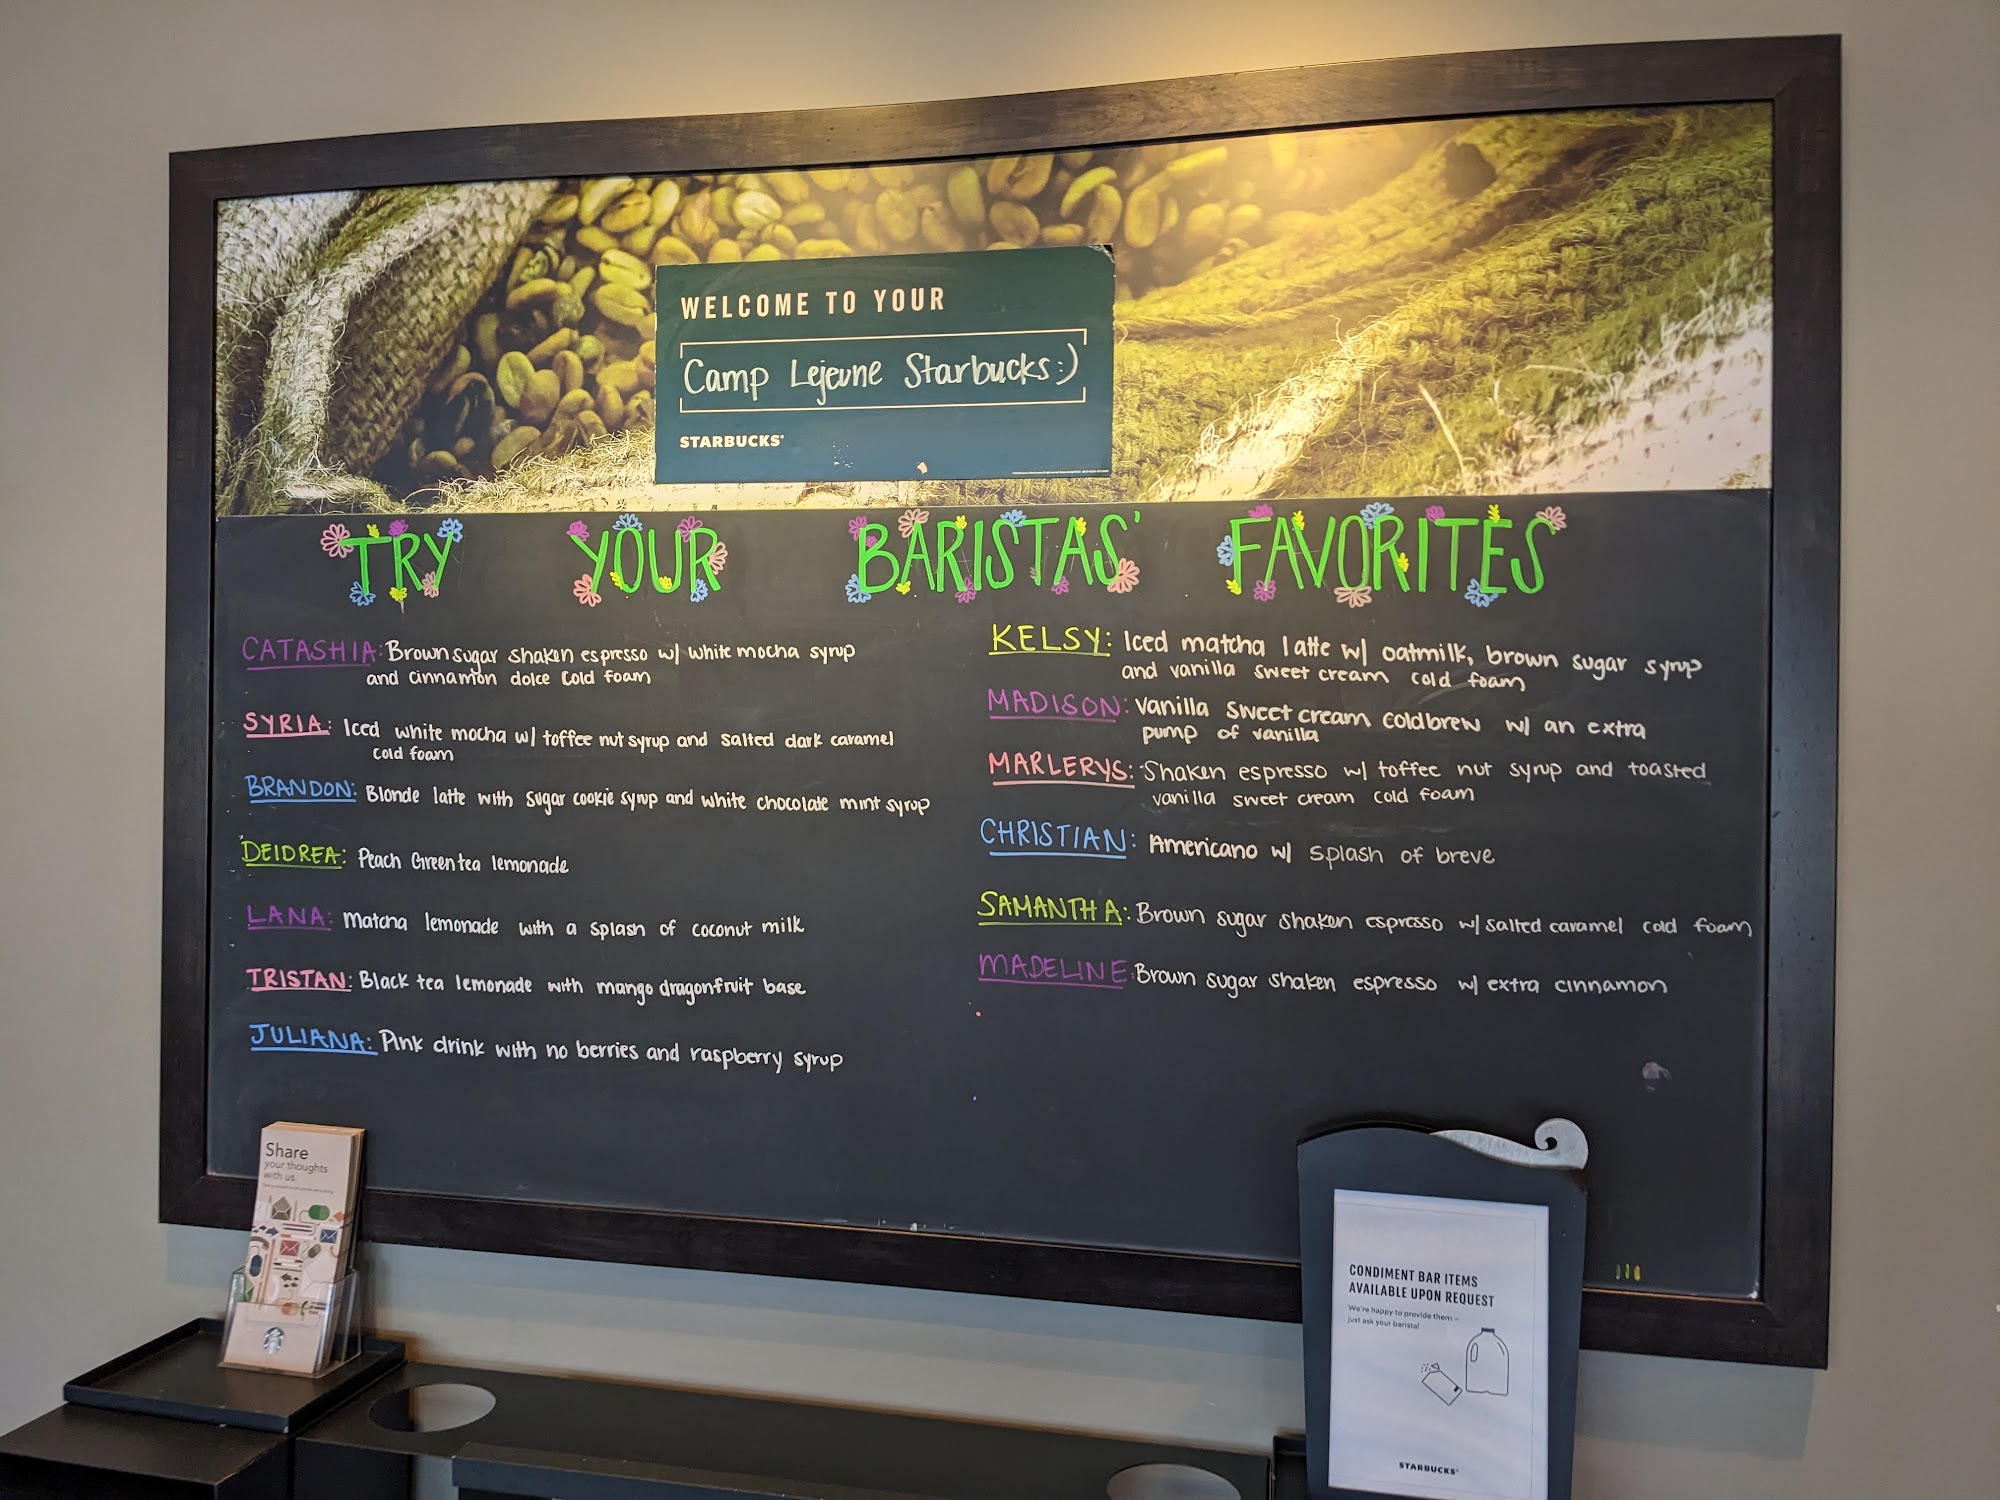 WELCOME TO YOUR
Camp Lejeune Starbucks:)
STARBUCKS®
TRY YOUR BARISTAS' FAVORITES
CATASHIA: Brown sugar shaken espresso w/ white mocha syrup
and cinnamon dolce cold foam
SYRIA: Iced white mocha w/ toffee nut syrup and salted dark caramel
cold foam
BRANDON: Blonde latte with sugar cookie syrup and white chocolate mint syrup
DEIDREA: Peach Green tea lemonade
LANA: Matcha lemonade with a splash of coconut milk
TRISTAN: Black tea lemonade with mango dragonfruit base
JULIANA: Pink drink with no berries and raspberry syrup
KELSY: Iced matcha latte w/ oatmilk, brown sugar syrup
and vanilla sweet cream cold foam
MADISON: Vanilla sweet cream coldbrew w/ an extra
pump of vanilla
MARLERYS: Shaken espresso w/ toffee nut syrup and toasted
vanilla sweet cream cold foam
CHRISTIAN: Americano w/ splash of breve
SAMANTHA: Brown sugar shaken espresso w/ salted caramel cold foam
MADELINE: Brown sugar shaken espresso w/ extra cinnamon
Share
your thoughts
with us.
CONDIMENT BAR ITEMS
AVAILABLE UPON REQUEST
We're happy to provide them –
just ask your barista!
STARBUCKS®